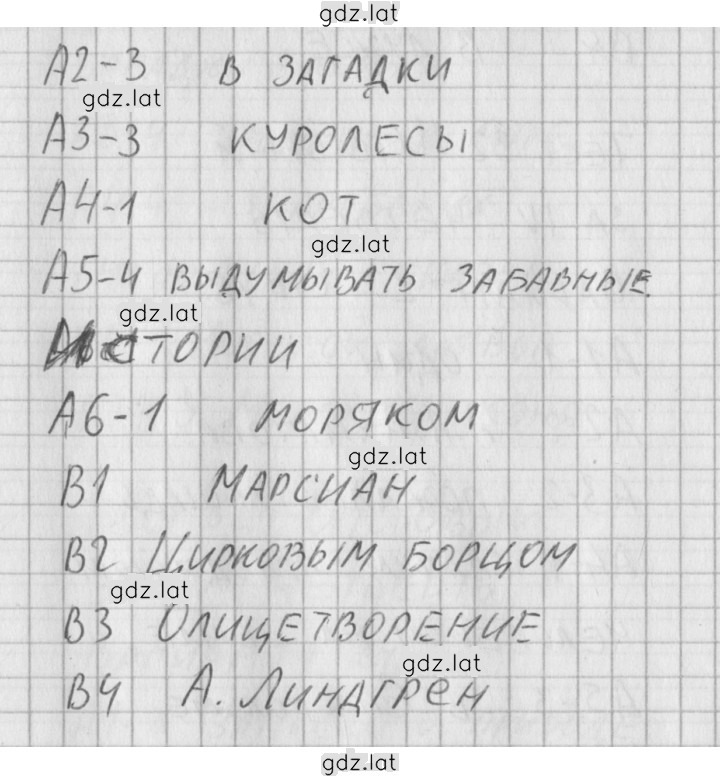 gdz.lat
А2-3 В ЗАГАДКИ
gdz.lat
А3-3 КУРОЛЕСЫ
А4-1 КОТ
gdz.lat
А5-4 ВЫДУМЫВАТЬ ЗАБАВНЫЕ
gdz.lat
ИСТОРИИ
А6-1 МОРЯКОМ
gdz.lat
В1 МАРСИАН
В2 ЦИРКОВЫМ БОРЦОМ
gdz.lat
В3 ОЛИЦЕТВОРЕНИЕ
gdz.lat
В4 А. ЛИНДГРЕН
gdz.lat